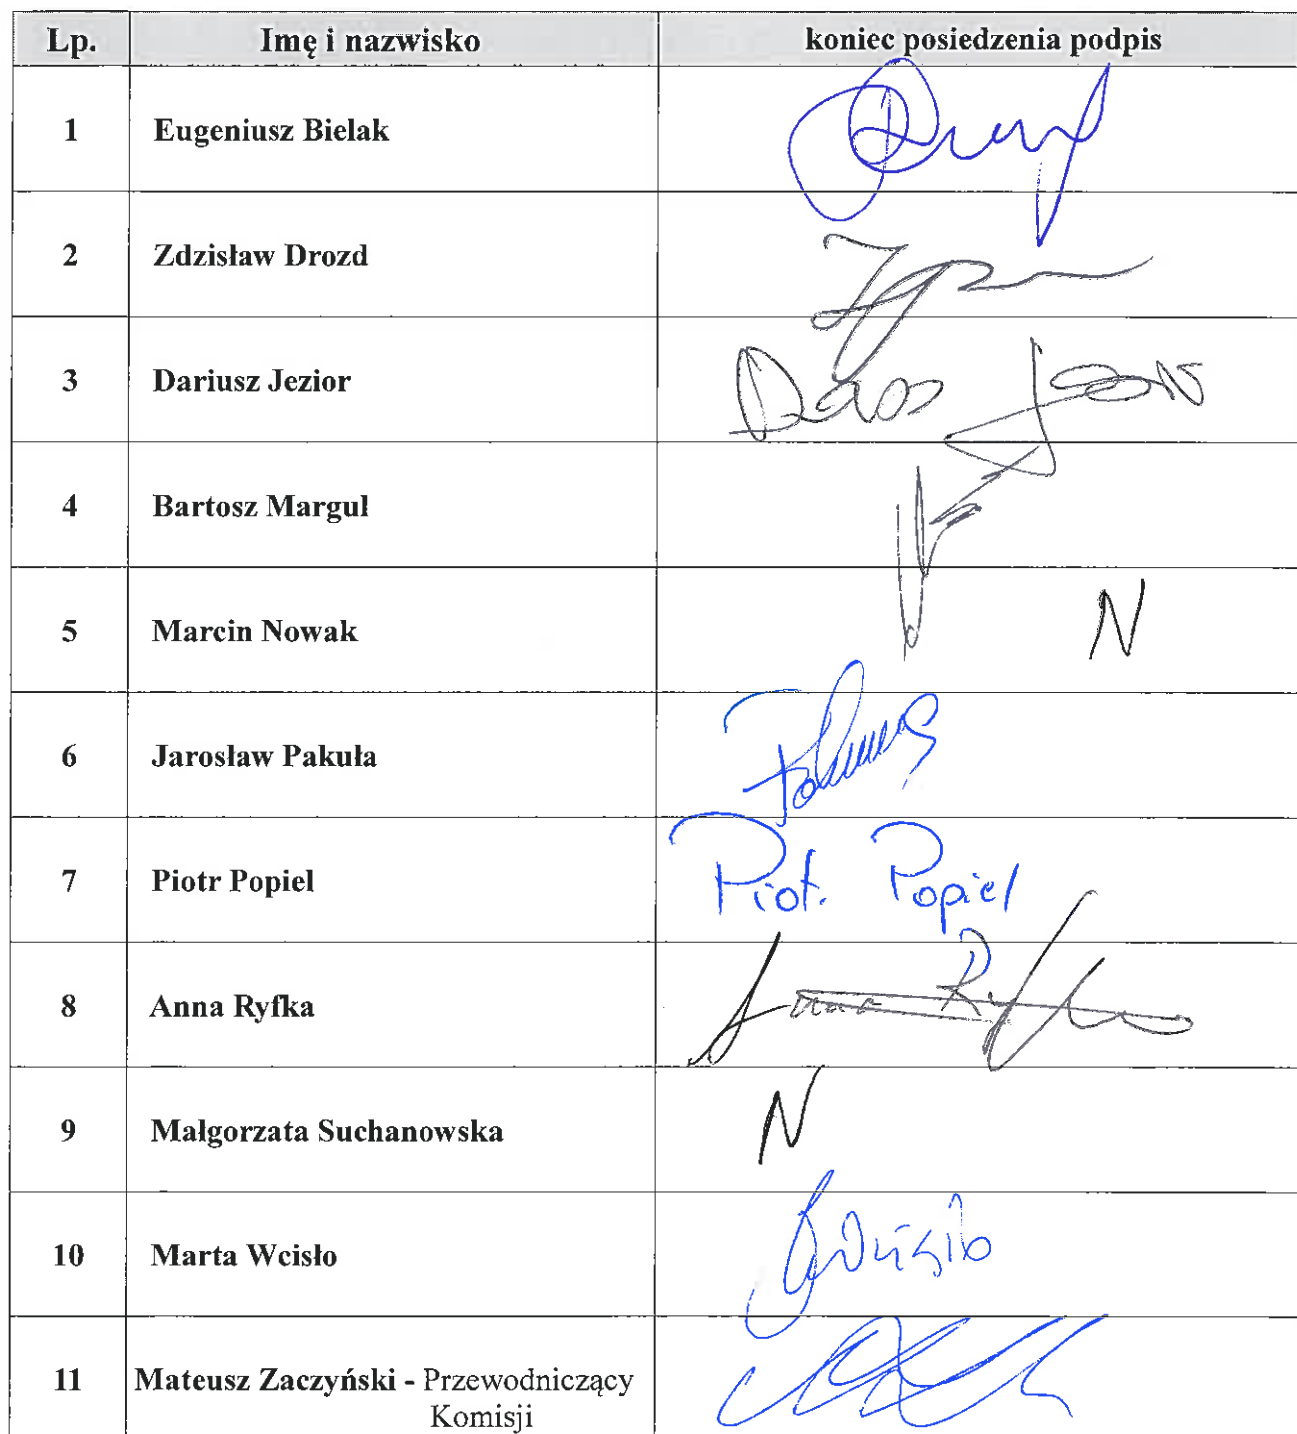 Lp. Imię i nazwisko koniec posiedzenia podpis
1 Eugeniusz Bielak
2 Zdzisław Drozd
3 Dariusz Jezior
4 Bartosz Margul
5 Marcin Nowak N
6 Jarosław Pakuła
7 Piotr Popiel Piotr Popiel
8 Anna Ryfka Anna
9 Małgorzata Suchanowska N
10 Marta Wcisło Wcisło
11 Mateusz Zaczyński - Przewodniczący
Komisji